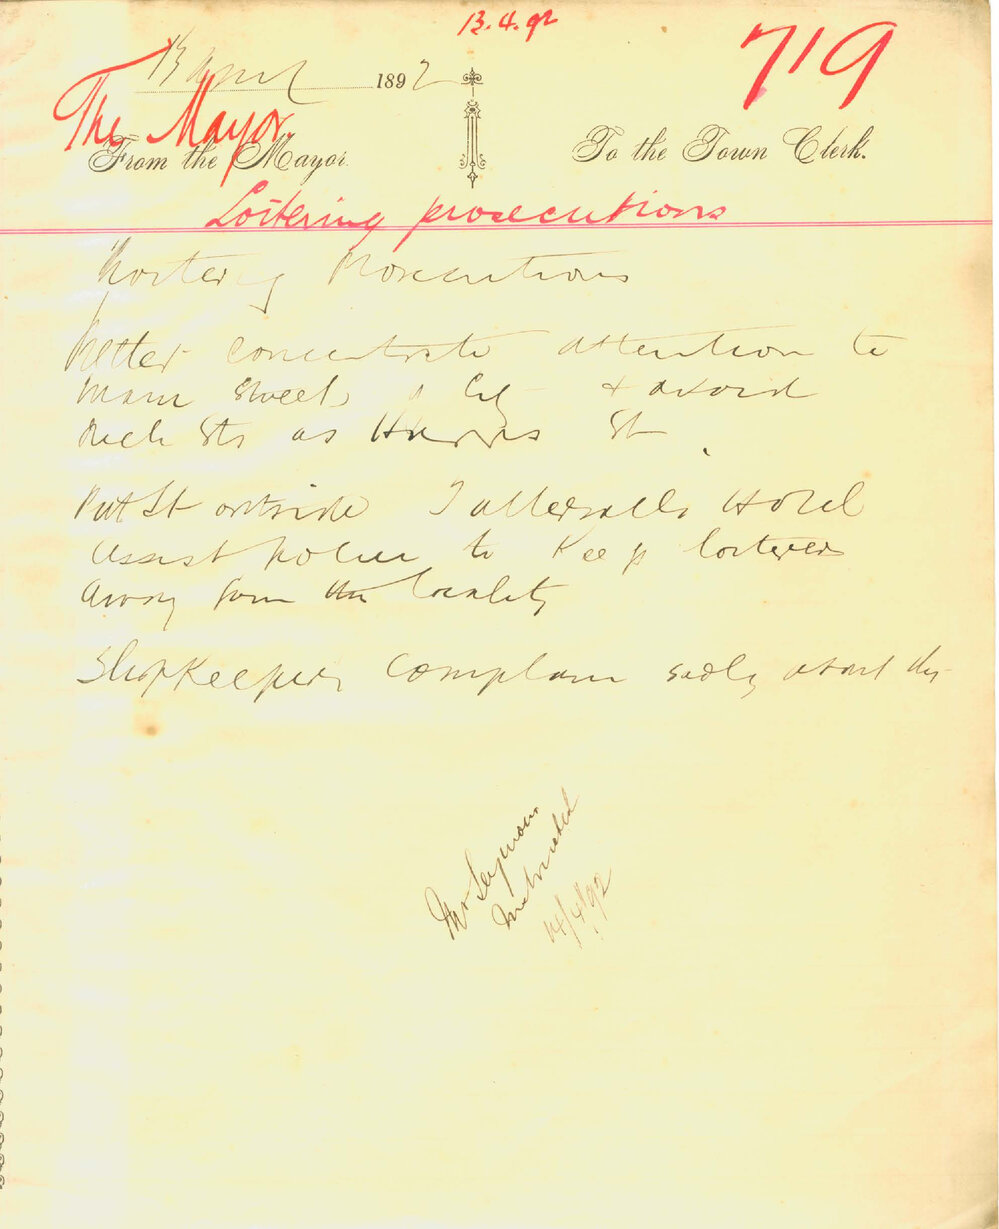 13.4.92
719
13 April 1892
The Mayor.
From the Mayor.
To the Town Clerk.
Loitering prosecutions
Loitering Prosecutions
Better concentrate attention to
main streets of City & avoid
such Sts as Harris St.
Pitt St outside Tattersalls Hotel
assist police to keep loiterers
away from the locality
Shopkeepers complain sadly about this
Mr Seymour
Instructed
14/4/92